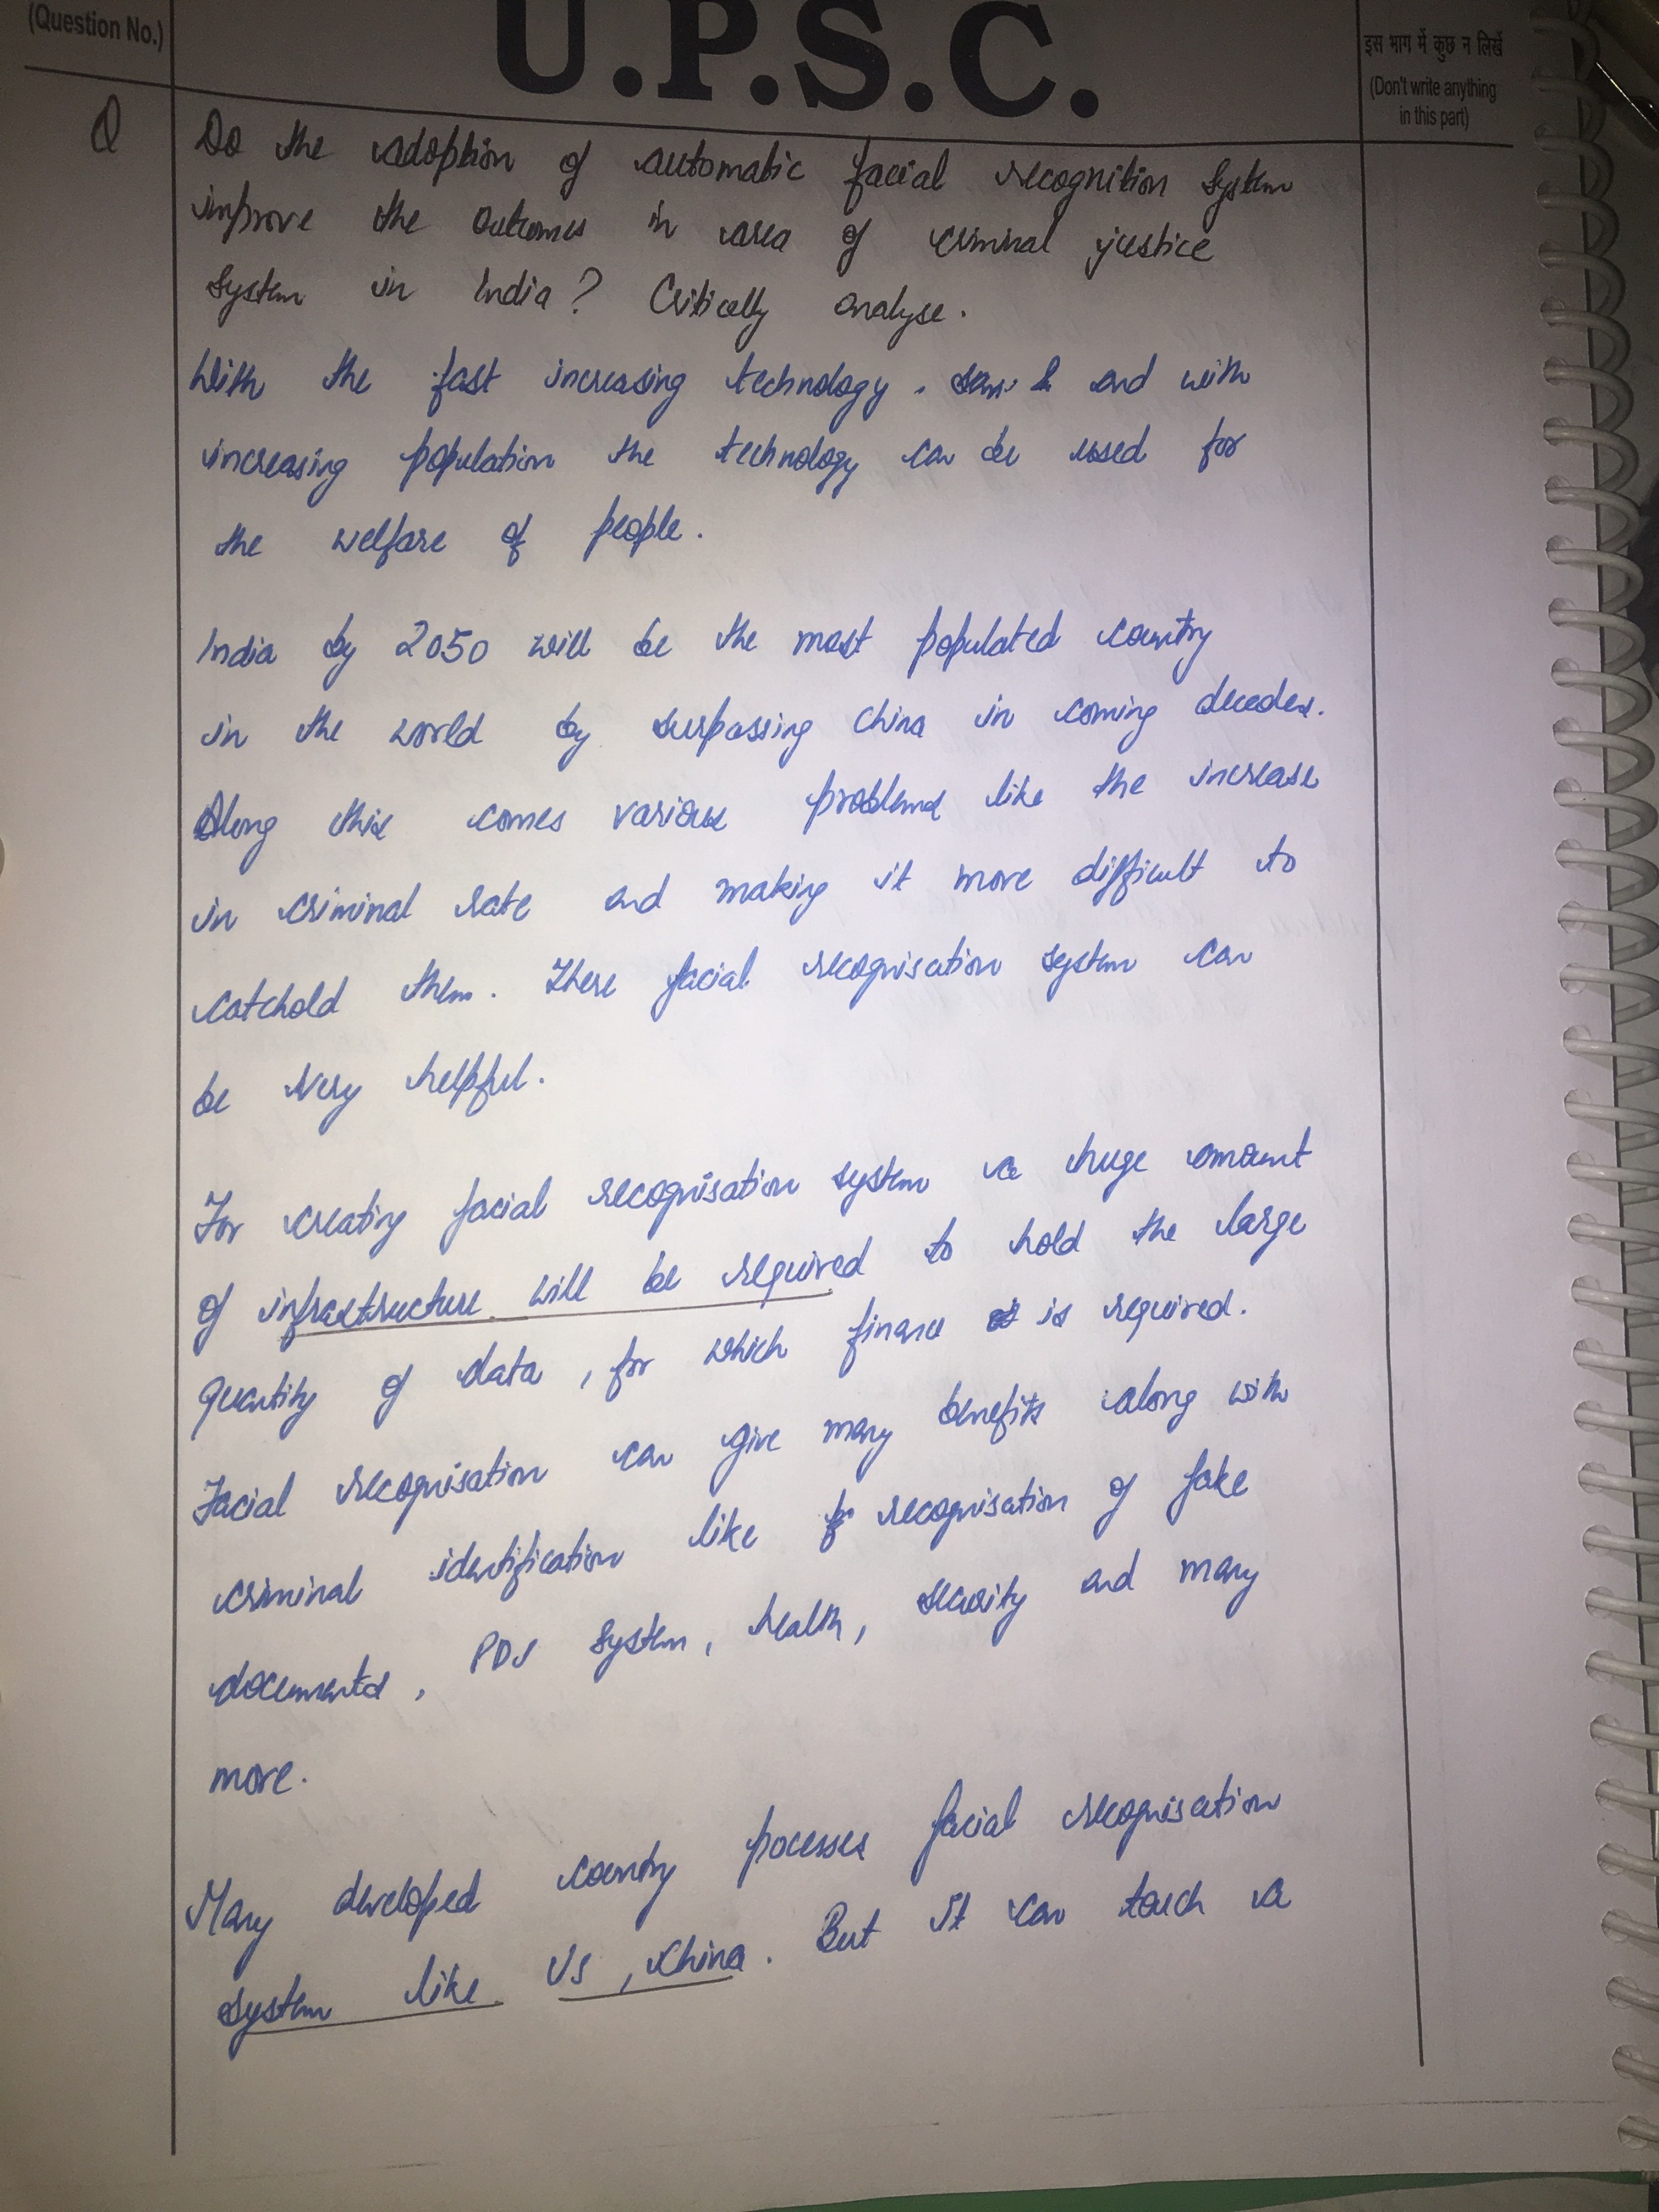 (Question No.)
U.P.S.C.
इस भाग में कुछ न लिखें
(Don't write anything
in this part)
Q
Do the adoption of automatic facial recognition system
improve the outcomes in area of criminal justice
system in India? Critically analyse.
With the fast increasing technology. and with
increasing population the technology can be used for
the welfare of people.
India by 2050 will be the most populated country
in the world by surpassing China in coming decades.
Along this comes various problems like the increase
in criminal rate and making it more difficult to
catchold them. There facial recognisation system can
be very helpful.
For creating facial recognisation system a huge amount
of infrastructure will be required to hold the large
quantity of data, for which finance is required.
Facial recognisation can give many benefits along with
criminal identification like recognisation of fake
documents, PDS system, health, security and many
more.
Many developed country pocesses facial recognisation
system like US, China. But it can touch a